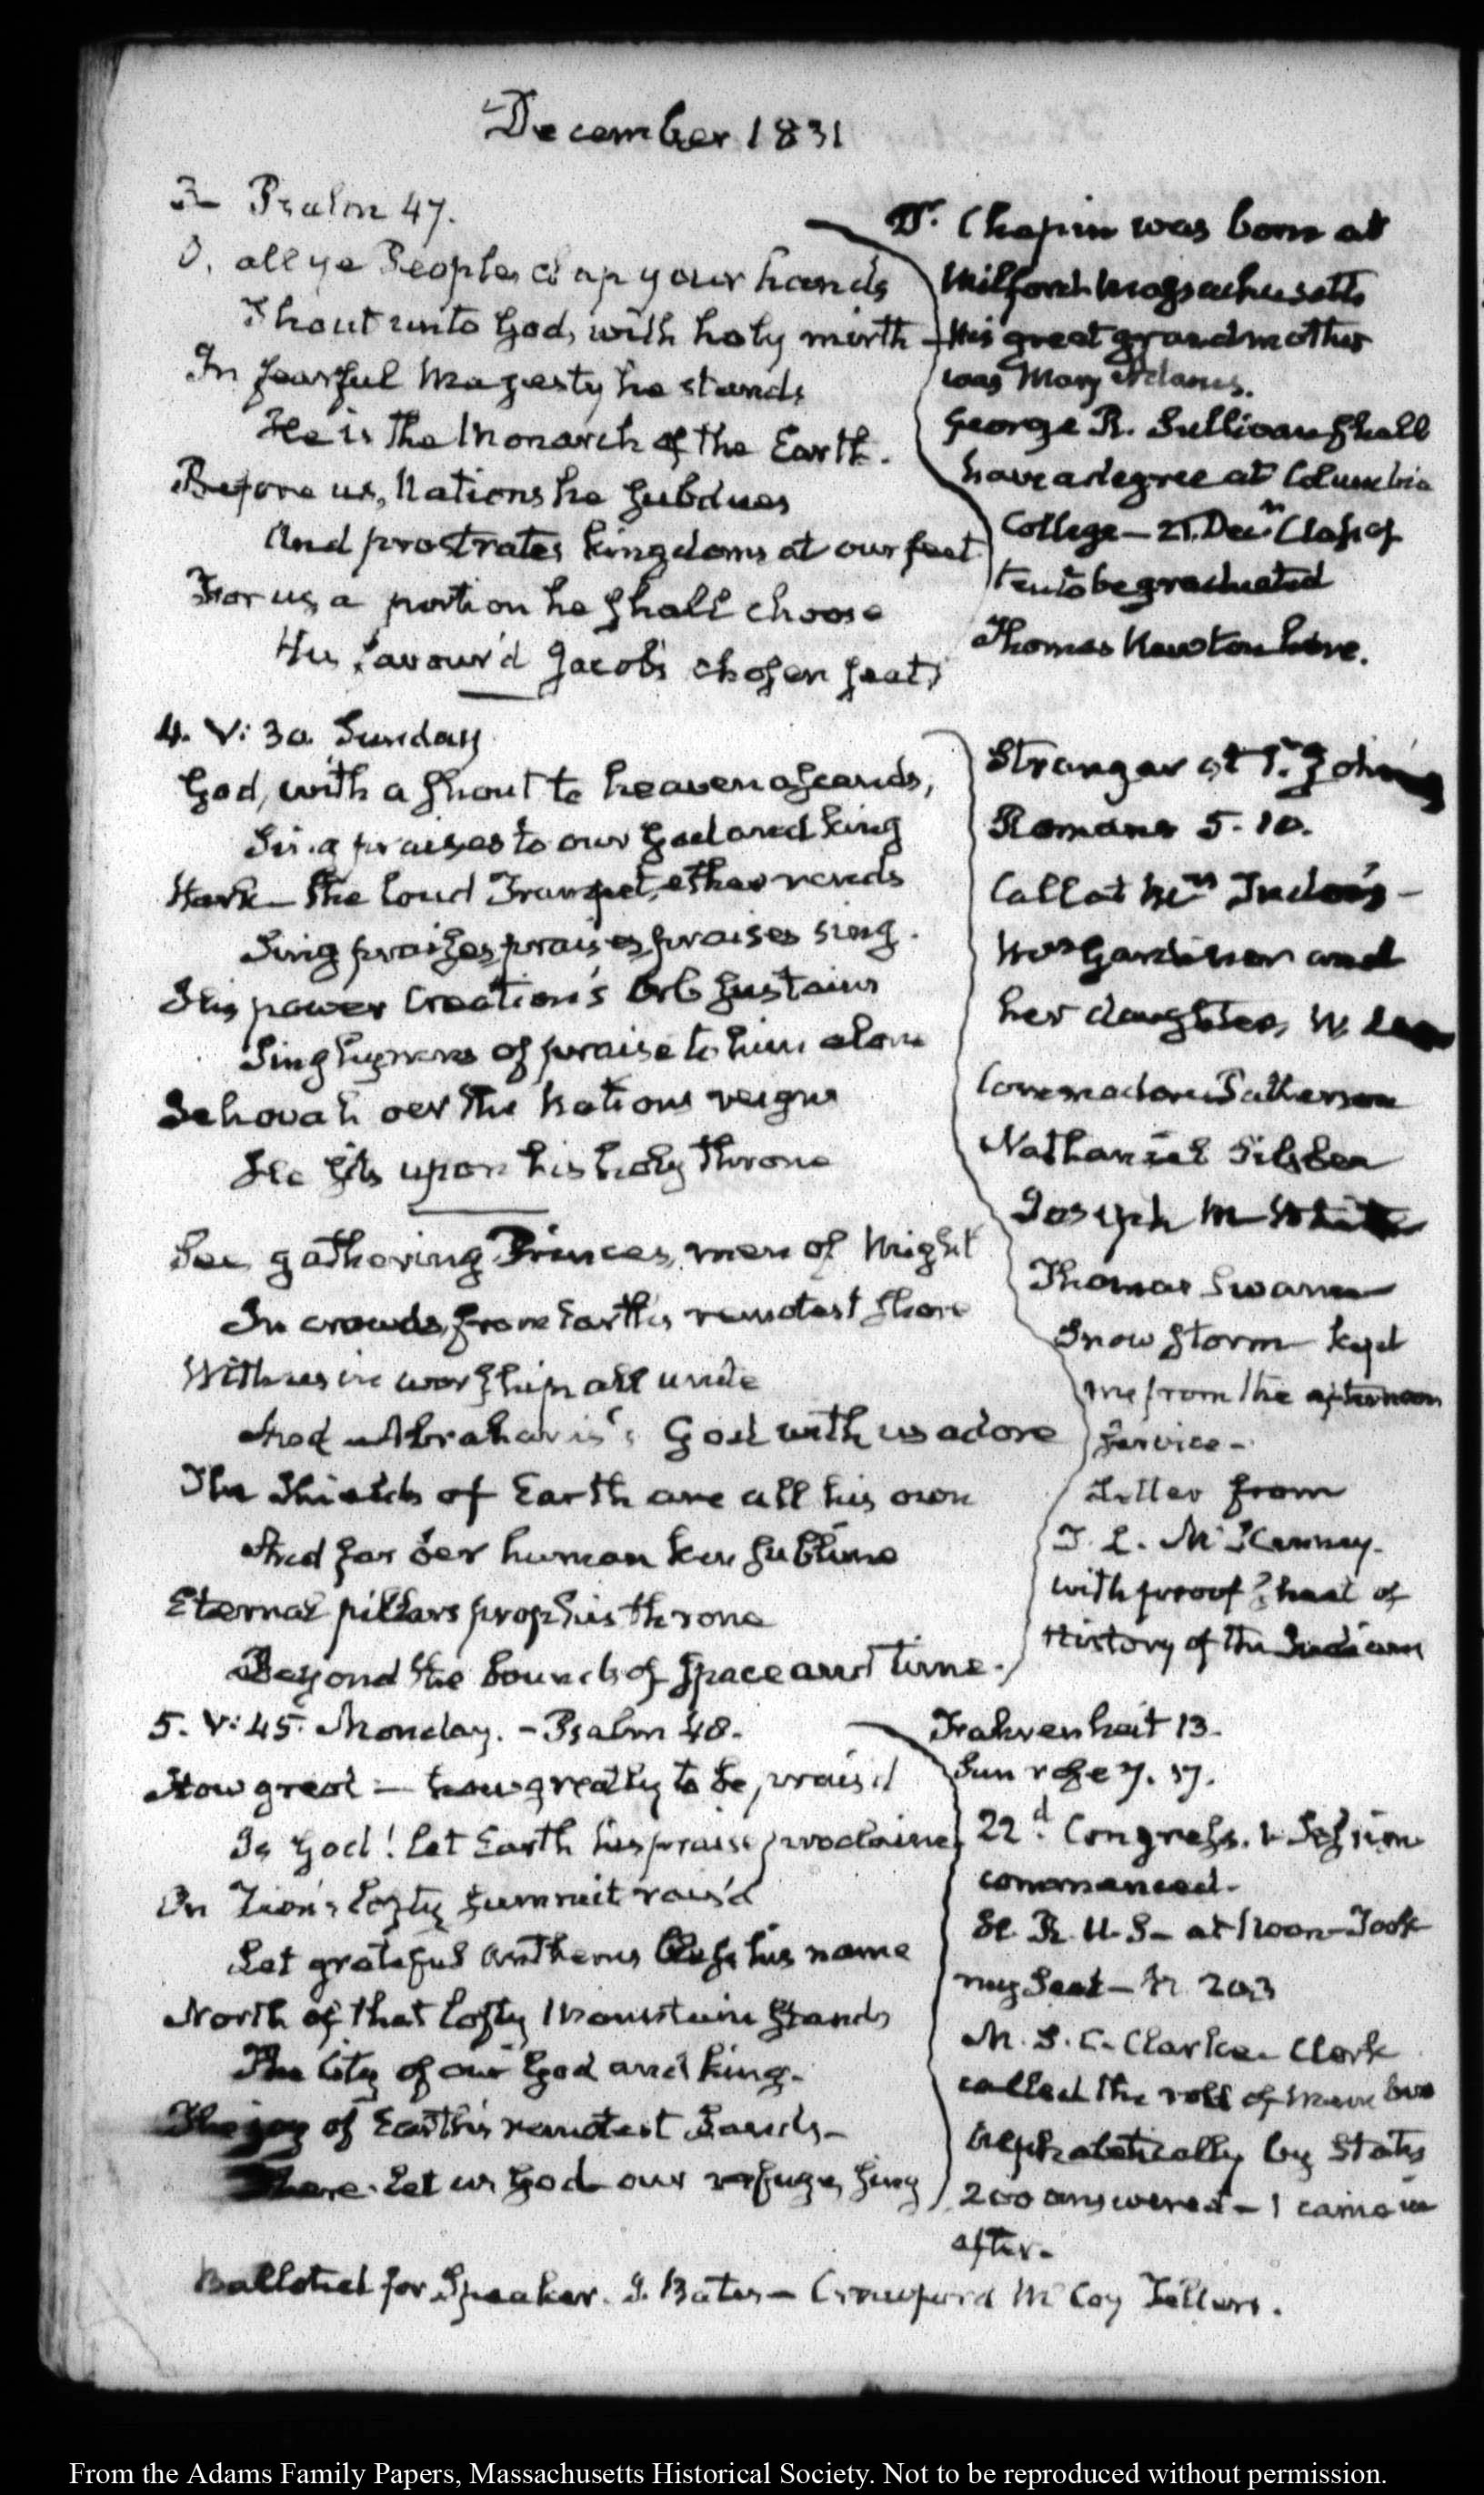 December 1831
3— Psalm 47.
O, all ye Peoples clap your hands
Shout unto God, with holy mirth —
In fearful Majesty he stands
He is the Monarch of the Earth.
Before us, Nations he subdues
And prostrates kingdoms at our feet
For us, a portion he shall choose
His favour'd Jacob's chosen seat
Dr. Chapin was born at
Milford Massachusetts
His great grandmother
was Mary Adams.
George R. Sullivan shall
have a degree at Columbia
College — 21. Decr. Class of
ten to be graduated
Thomas Newton here.
4. V: 30. Sunday
God, with a shout to heaven ascends,
Sing praises to our God and king
Hark — the loud Trumpet, ether rends
Sing praises, praises, praises sing.
His power Creation's Orb sustains
Sing hymns of praise to him alone
Jehovah oer the Nations reigns
He sits upon his holy throne
See gathering Princes, men of Might
In crowds, from Earth's remotest shore
With us in worship all unite
And Abraham's God with us adore
The Shields of Earth are all his own
And far oer human ken sublime
Eternal pillars prop his throne
Beyond the bounds of space and time.
Stranger at St. John's
Romans 5. 10.
Call at Mrs
Mrs Gardiner and
her daughter, W.
Commodore Patterson
Nathaniel Silsbee
Joseph M White
Thomas Swann
Snow storm kept
me from the afternoon
service —
Letter from
T. L. McKenney.
with proof sheet of
History of the Indians
5. V: 45. Monday. — Psalm 48.
How great — how greatly to be prais'd
Is God! let Earth his praise proclaim,
On Zion's lofty summit rais'd
Let grateful anthems bless his name
North of that lofty Mountain stands
The City of our God and king —
The joy of Earth's remotest Lands —
There let us God our refuge, sing
Fahrenheit 13.
Sun rose 7. 17.
22d. Congress. 1. Session
commenced.
H. R. U. S — at Noon — Took
my Seat — N. 203
M. S. C. Clarke — Clerk
called the roll of members
alphabetically by States
200 answered — I came in
after —
Balloted for Speaker. I. Bates — Crawford McCoy Tellers.
From the Adams Family Papers, Massachusetts Historical Society. Not to be reproduced without permission.